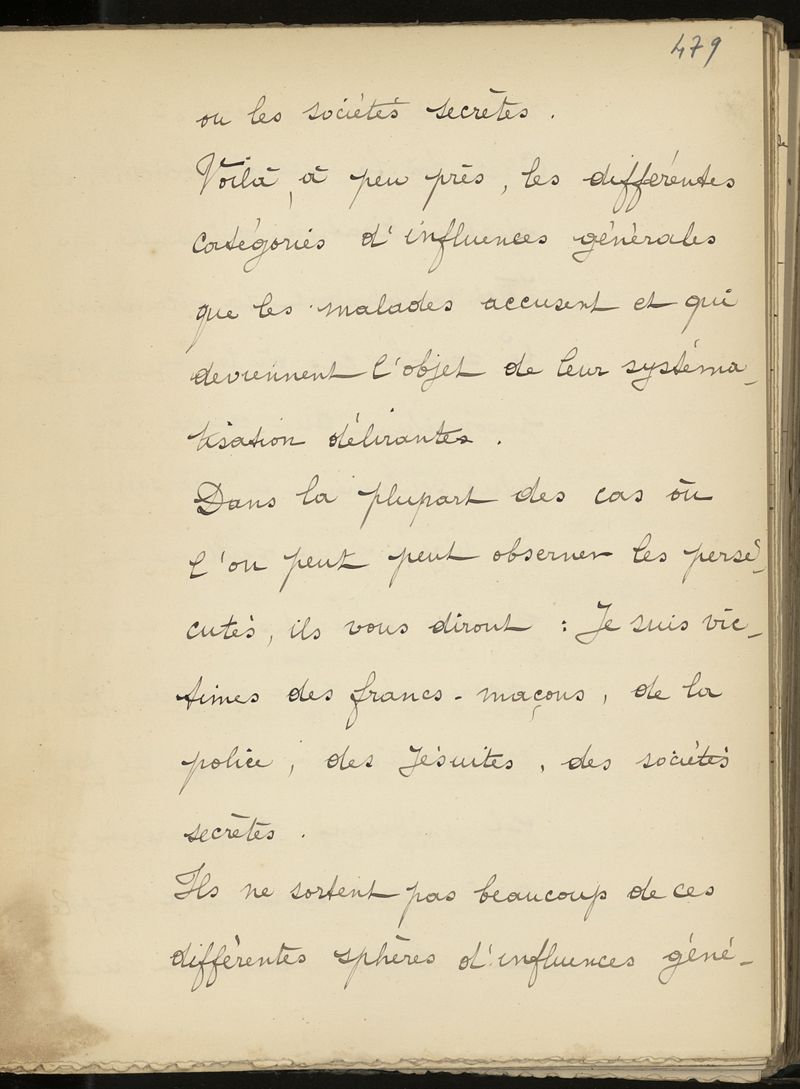 479
ou les sociétés secrètes.
Voilà, à peu près, les différentes
catégories d'influences générales
que les malades accusent et qui
deviennent l'objet de leur systéma-
tisation délirantes.
Dans la plupart des cas où
l'on peut peut observer les persé-
cutés, ils vous diront : Je suis vic-
times des francs-maçons, de la
police, des Jésuites, des sociétés
secrètes.
Ils ne sortent pas beaucoup de ces
différentes sphères d'influences géné-